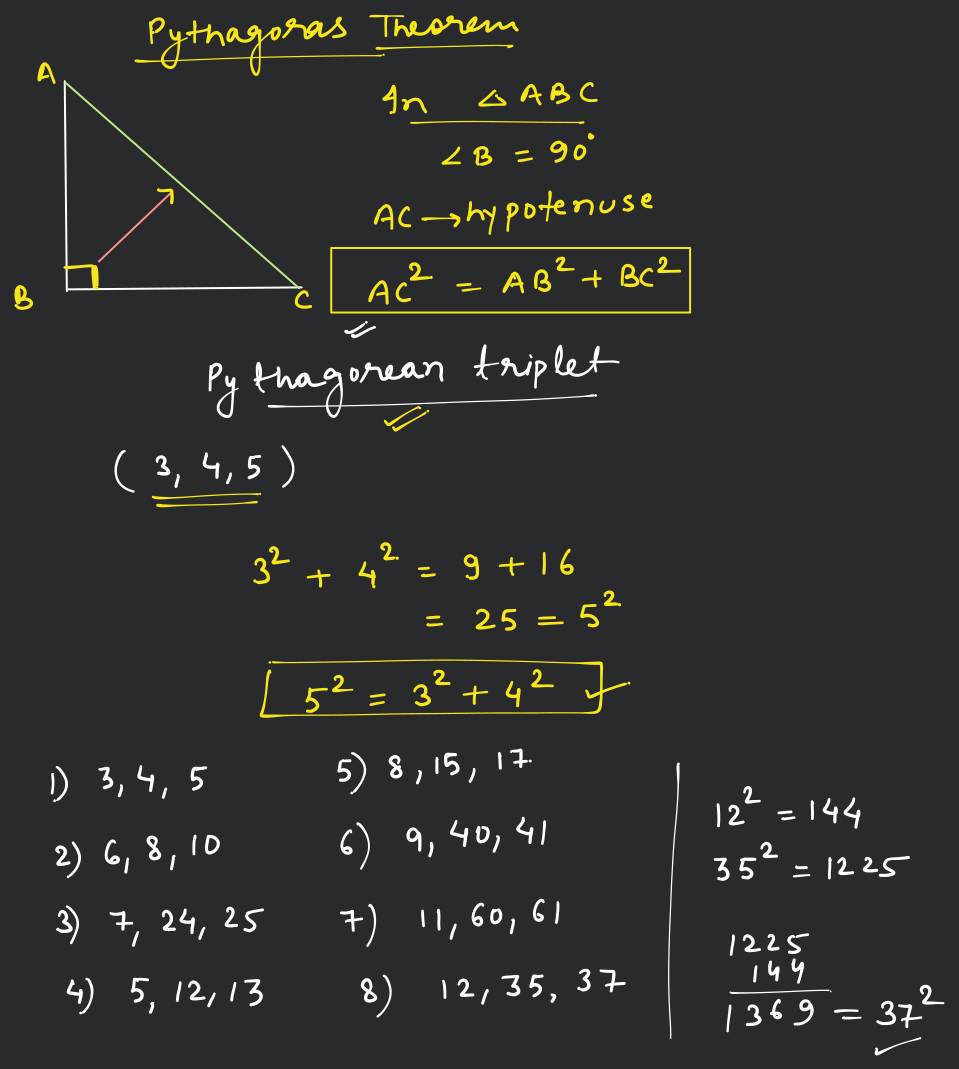 Pythagoras Theorem
A
B
C
In △ ABC
∠B = 90°
AC → hypotenuse
AC² = AB² + BC²
Pythagorean triplet
(3, 4, 5)
3² + 4² = 9 + 16
= 25 = 5²
5² = 3² + 4² ✓
1) 3, 4, 5
2) 6, 8, 10
3) 7, 24, 25
4) 5, 12, 13
5) 8, 15, 17
6) 9, 40, 41
7) 11, 60, 61
8) 12, 35, 37
12² = 144
35² = 1225
1225
144
1369 = 37²